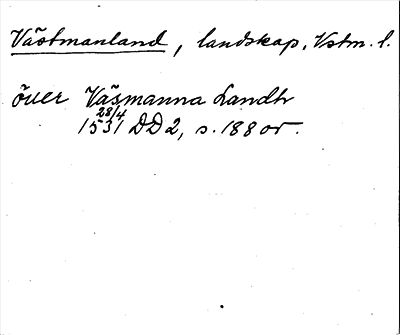 Västmanland, landskap, Vstm. l.
över Väsmanna Landh
28/4
1531 DD2, s. 188 or.